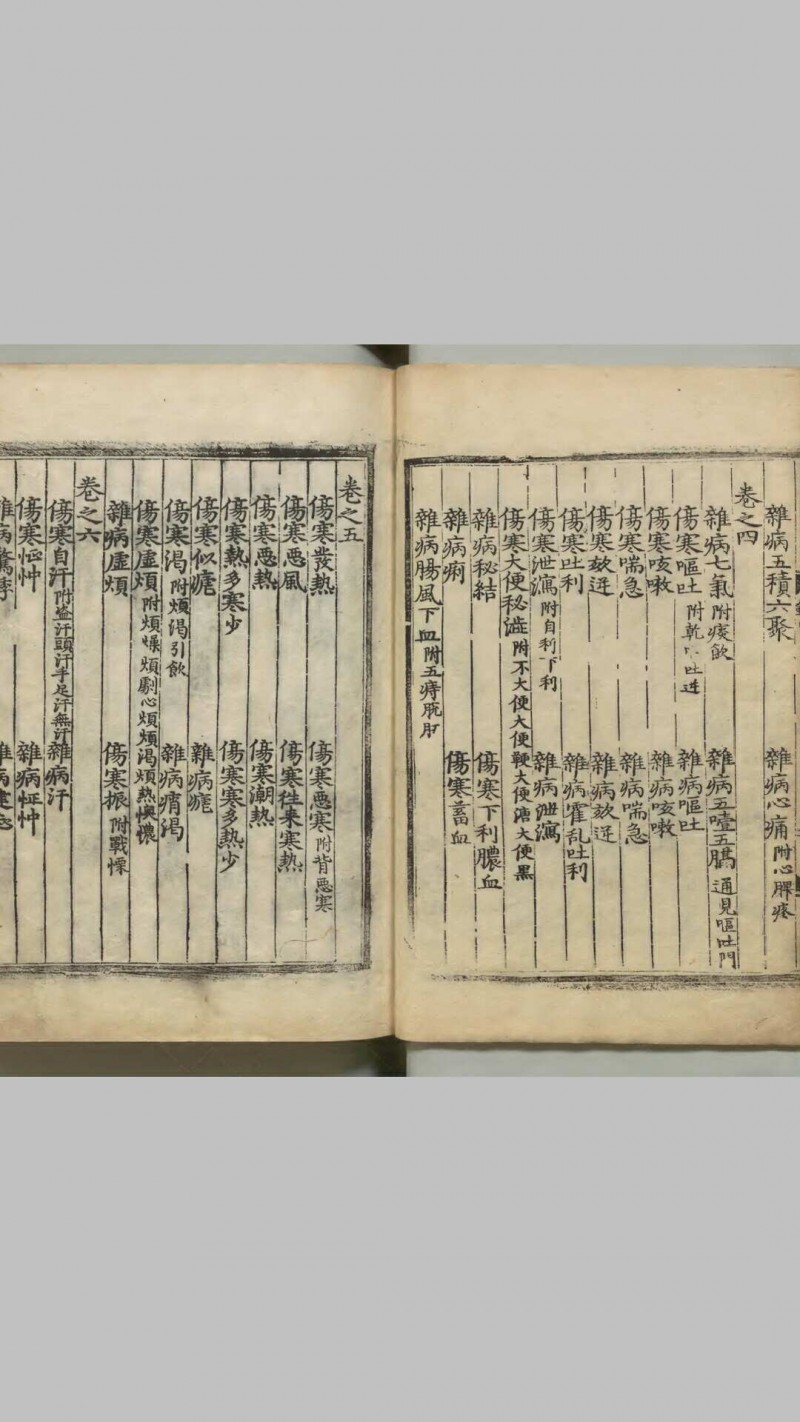 雜病五積六聚 雜病心痛附心脾疼
卷之四
雜病七氣附痰飲 雜病五噎五膈通見嘔吐門
傷寒嘔吐附乾 吐逆 雜病嘔吐
傷寒咳嗽 雜病咳嗽
傷寒喘急 雜病喘急
傷寒欬逆 雜病欬逆
傷寒吐利 雜病霍乱吐利
傷寒泄瀉附自利下利 雜病泄瀉
傷寒大便秘澁附不大便大便鞕大便溏大便黑
雜病秘結 傷寒下利膿血
雜病痢 傷寒蓄血
雜病腸風下血附五痔脱肛
卷之五
傷寒發熱 傷寒惡寒附背惡寒
傷寒惡風 傷寒徃来寒熱
傷寒惡熱 傷寒潮熱
傷寒熱多寒少 傷寒寒多熱少
傷寒似瘧 雜病瘧
傷寒渴附煩渴引飲 雜病痟渴
傷寒虛煩附煩燥煩劇心煩煩渴煩熱懊憹
雜病虛煩 傷寒振附戰慄
卷之六
傷寒自汗附盜汗頭汗手足汗無汗 雜病汗
傷寒怔忡 雜病怔忡
雜病驚悸 雜病